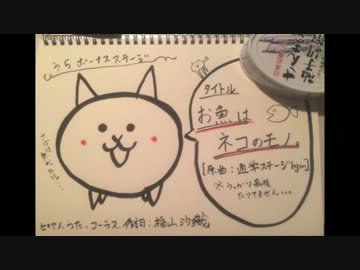 うらボーナスステージ
タイトル
お魚は
ネコのモノ。
[原曲:通常ステージbgm]
※うっかり最後
たりてません...
ピアノ、うた、コーラス、作詞: